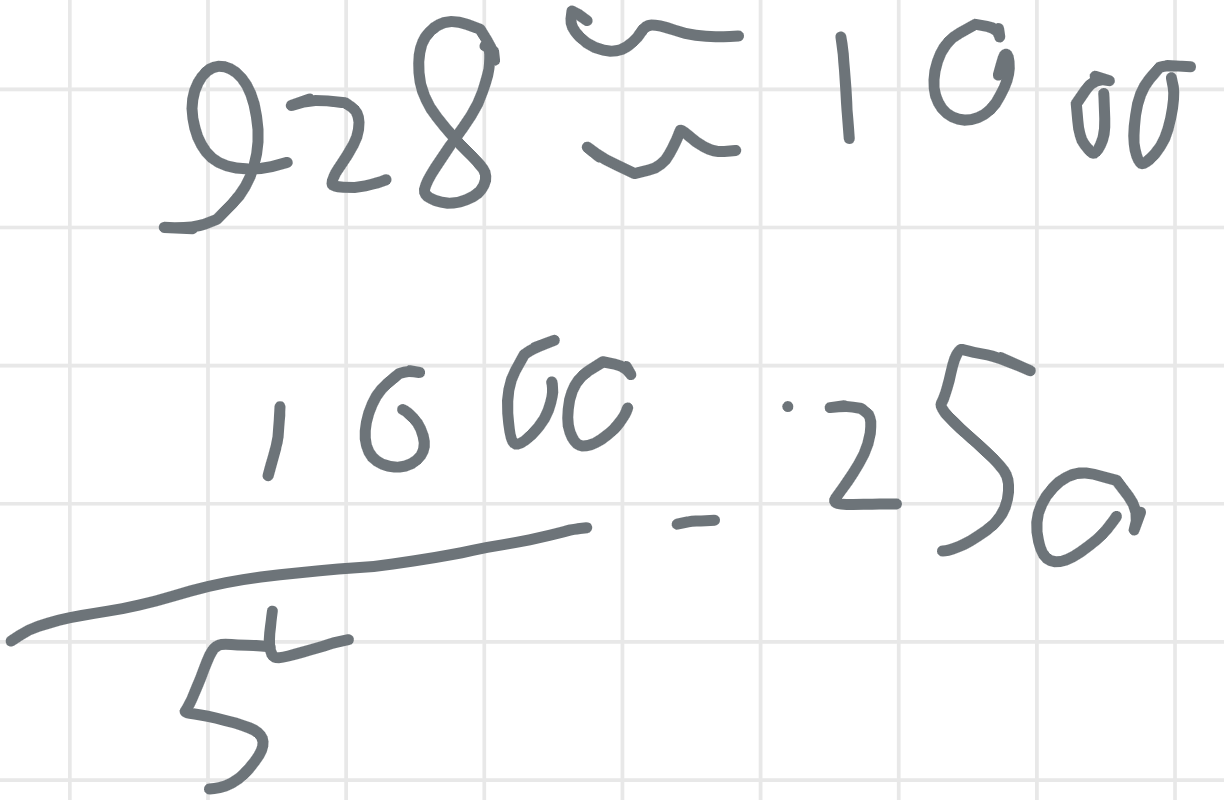 928 ≈ 1000
1000 - 250
5